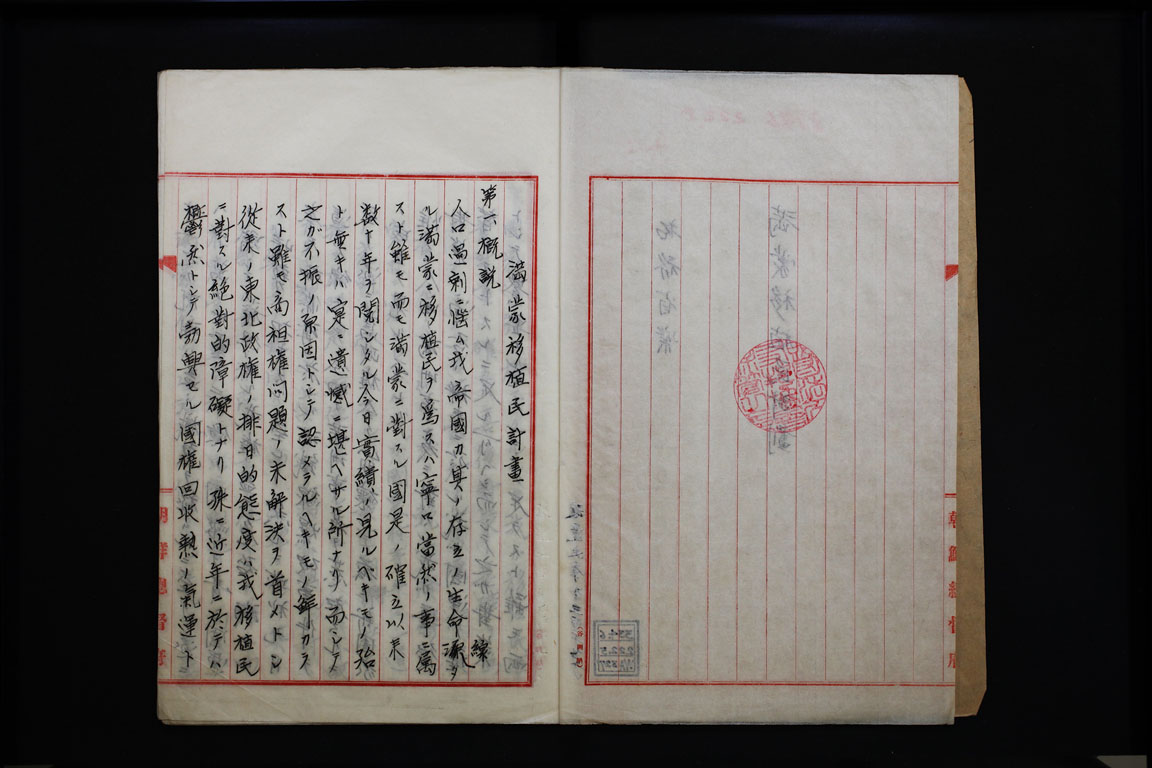 満蒙移植民計畫
第一 概説
人口過剰ニ悩ム我帝國カ其ノ存立ノ生命線
ル満蒙ニ移植民ヲ為スハ寧ロ當然ノ事ニ属
スト雖モ而モ満蒙ニ對スル國是ノ確立以来
数十年ヲ閲シタル今日實績ノ見ルベキモノ殆
ト無キハ寔ニ遺憾ニ堪ヘサル所ナリ而シテ
之ガ不振ノ原因トシテ認メラルヘキモノ鮮カラ
スト雖モ商租権問題ノ未解決ヲ首メトシ
従来ノ東北政権ノ排日的態度ハ我移植民
ニ對スル絶對的障礙トナリ殊ニ近年ニ於テハ
鬱然トシテ勃興セル國権回收熱ノ氣運ト
朝鮮總督府